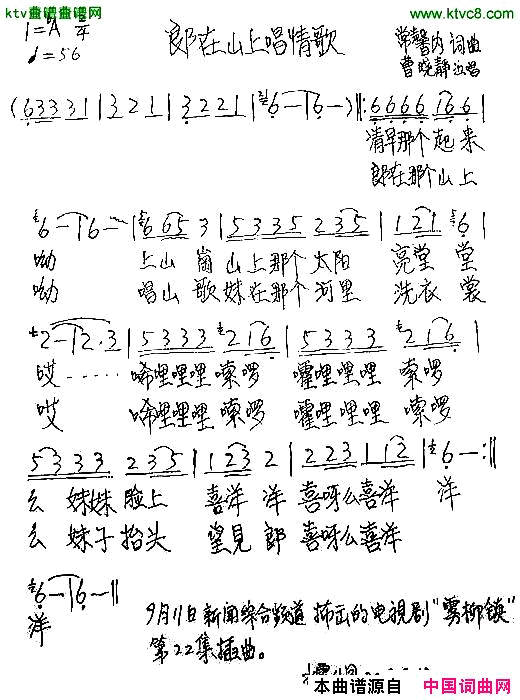 ktv曲谱曲谱网 www.ktvc8.com
www.ktvc8.com
1=A 2/4
♩=56
郎在山上唱情歌
常馨内 词曲
曹晓静 演唱
(6 3 3 3 1 | 3 2 1 | 3 2 2 1 | 6 — | 6 — ) ‖: 6 6 6 6 1 6 6 |
清早那个起来
郎在那个山上
6 — | 6 — | 6 6 5 3 | 5 3 3 5 2 3 5 | 1 2 1 6 |
呦 上山崗山上那个太阳 亮堂堂
呦 唱山歌妹在那个河里 洗衣裳
2 — | 2 · 3 | 5 3 3 3 2 1 6 | 5 3 3 3 2 1 6 |
哎 …… 唏哩哩哩嗦啰 嚯哩哩哩 嗦啰
哎 唏哩哩哩嗦啰 嚯哩哩哩 嗦啰
5 3 3 3 2 3 5 | 1 2 3 2 | 2 2 3 1 1 2 | 6 — :‖
么 妹妹脸上 喜洋洋喜呀么喜洋 洋
么 妹子抬头 望見郎喜呀么喜洋
6 — | 6 — ‖
洋
9月11日新闻综合频道 播出的电視剧"雾柳镇"
第22集插曲。
本曲谱源自 中国词曲网